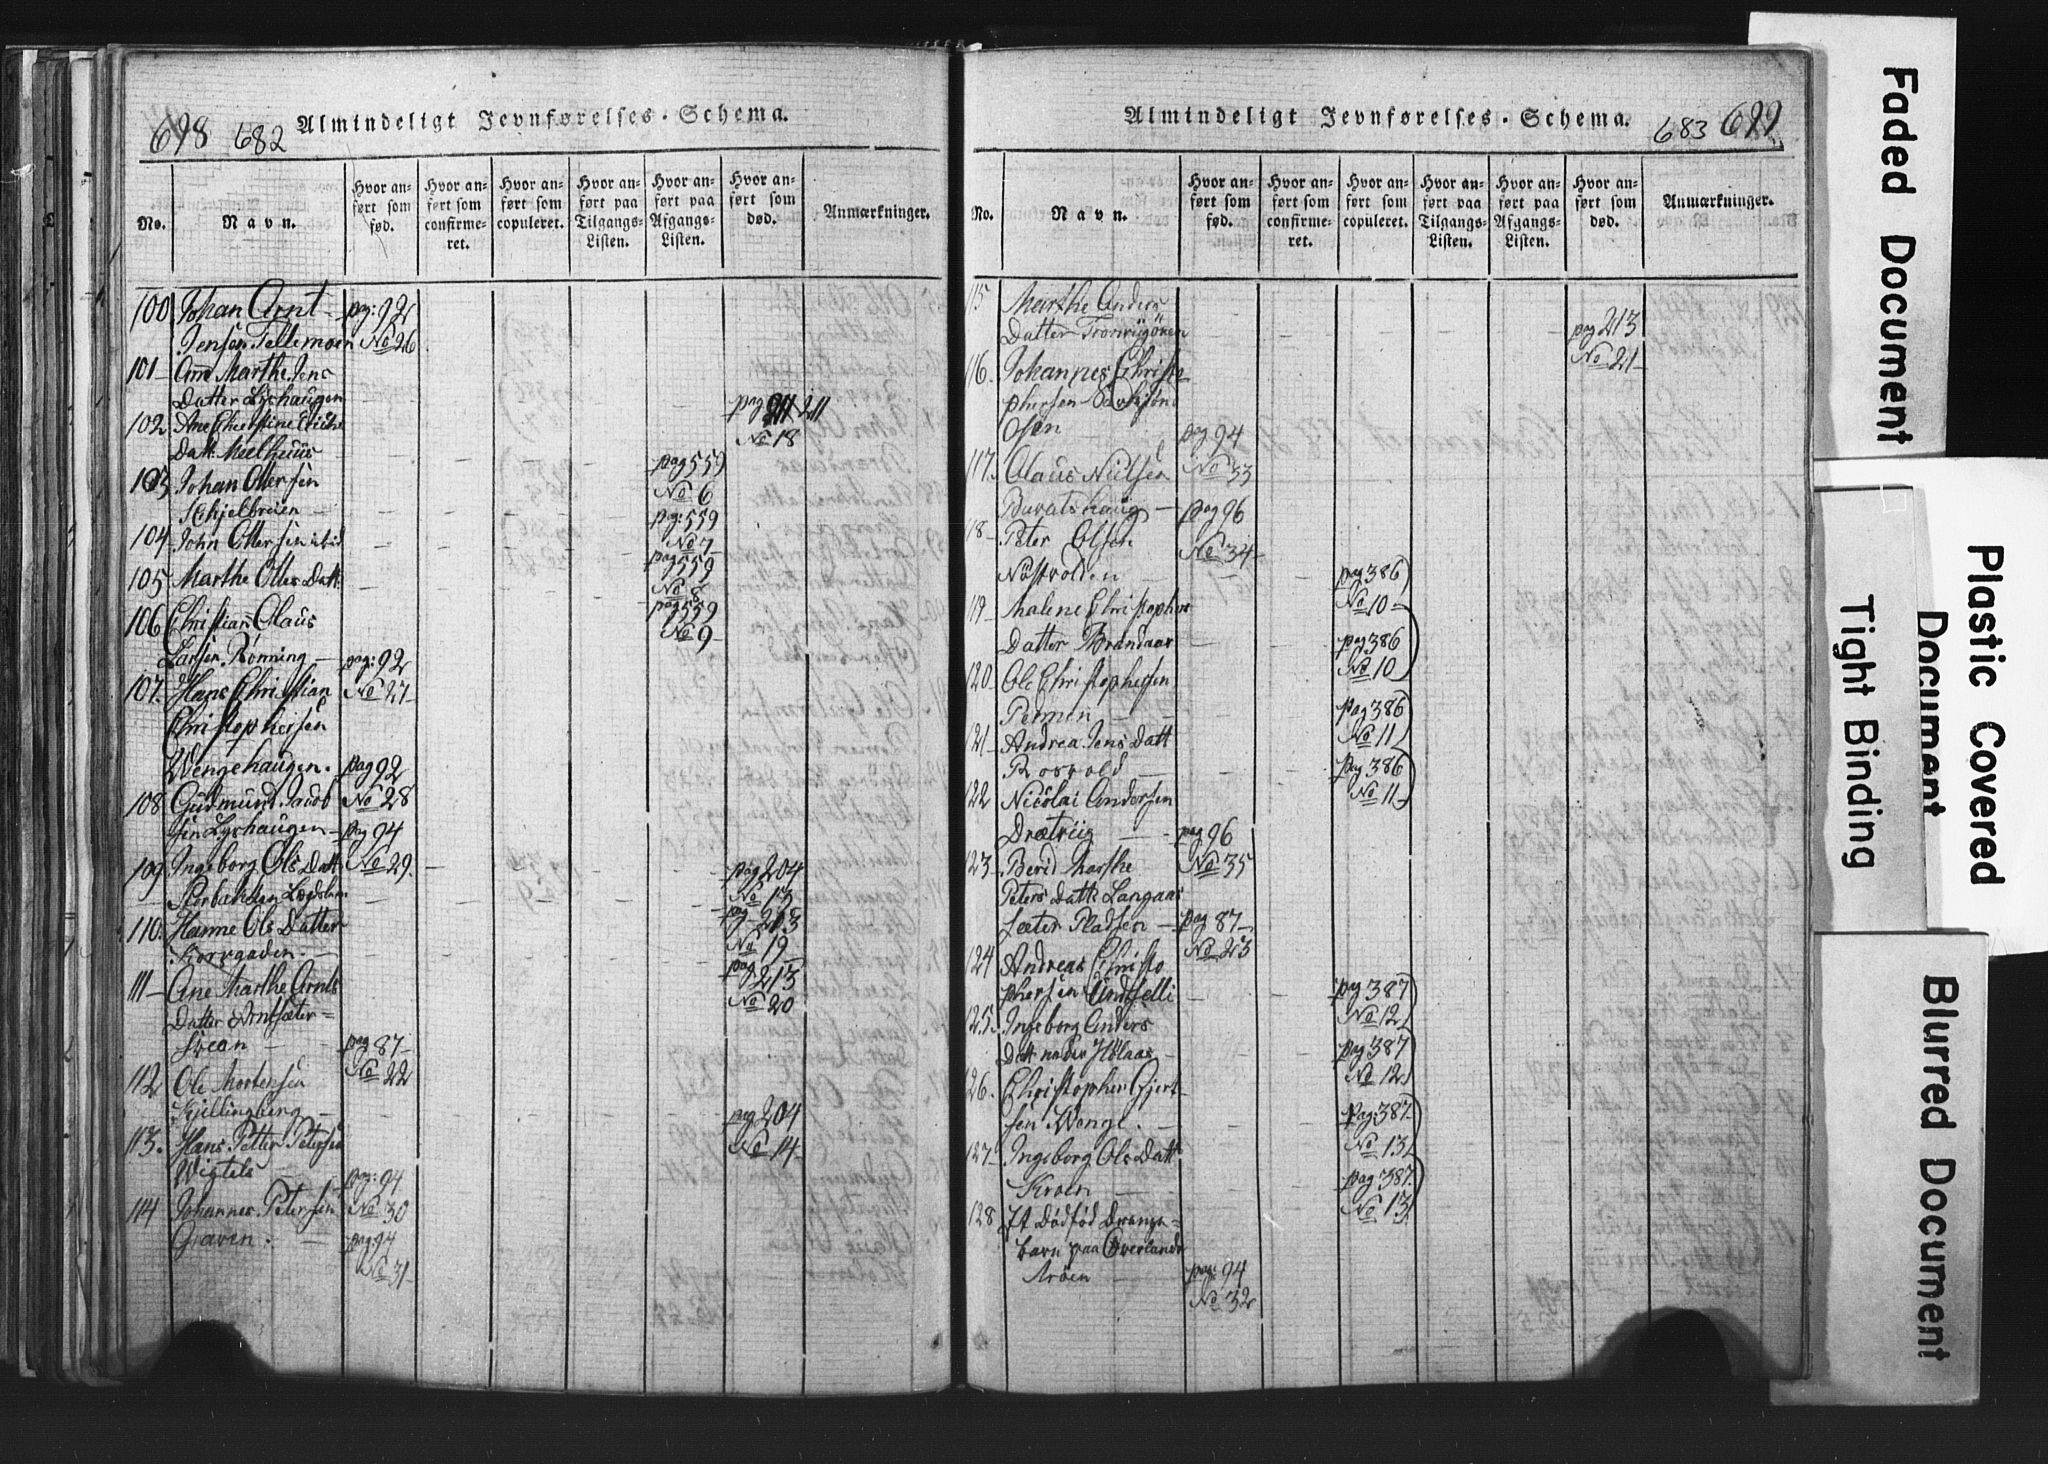 698 682 Almindeligt Jevnførelses-Schema.
No.
Navn.
Hvor an-
ført som
fød.
Hvor an-
ført som
confirme-
ret.
Hvor an-
ført som
copuleret.
Hvor an-
ført paa
Tilgangs-
Listen.
Hvor an-
ført paa
Afgangs-
Listen.
Hvor an-
ført som
død.
Anmærkninger.
100 Johan Arnt pag: 92
Jensen Tellemoen No 26
101 Ane Marthe Jens
Datter Lyshaugen pag 211 211
102 Ane Christine Erichs No 18
Datt. Meelhuus
pag 559
103 Johan Ottersen No 6
Schjelbreien pag: 559
104 John Ottersen ibid No 7
pag 559
105 Marthe Otters Datt: No 8
pag 559
106 Christian Olaus No 9
Larsen Rønning pag: 92
107. Hans Christian No 27
Christophersen
Wengehaugen. pag 92
108 Gudmund Jacob No 28
sen Lyshaugen pag 94
109 Ingeborg Ols Datt No 29. pag 204
No 13
pag 213
110. Hanne Ols Datter No 19
Korsgaden. pag 213
111 Ane Marthe Arnts No 20
Datter Arntsæter=
svean pag 87
No 22
112 Ole Mortensen
Kjellingberg pag 204
113. Hans Petter Petersen No 14
Wigtels pag: 94
114 Johannes Petersen No 30
Graven. pag 94
No 31
Almindeligt Jevnførelses-Schema. 683 699
No.
Navn.
Hvor an-
ført som
fød.
Hvor an-
ført som
confirme-
ret.
Hvor an-
ført som
copuleret.
Hvor an-
ført paa
Tilgangs-
Listen.
Hvor an-
ført paa
Afgangs-
Listen.
Hvor an-
ført som
død.
Anmærkninger.
115 Marthe Anders
Datter pag 213
No 21
116. Johannes Christo
phersen
Osen pag 94
117. Olaus Nielsen No 33
Buvatshaug pag 96
118 Peter Olsen No 34
Nøstvolden pag 386
119 Malene Christophers No 10
Datter Brandaas pag 386
No 10
120 Ole Christophersen
pag 386
121 Andrea Jens Datt No 11
Rosvold pag 386
122 Nicolai Andersen No 11
Drætrüg pag 96
123. Berid Marthe No 35
Peters Datts Langaas
Sæter Pladsen pag 87
No 23
124 Andreas Christo
phersen Lindselli pag 387
125. Ingeborg Anders No 12
Datt nedr Hollaas pag 387
126. Christopher Gjert No 12
sen Wengl. pag: 387
127 Ingeborg Ols Datt No 13
Kroen pag 387.
128 Et Dødfød Drenge= No 13
barn paa Overlands
Arøen pag: 94
No 32
Faded Document
Plastic Covered
Document
Tight Binding
Blurred Document